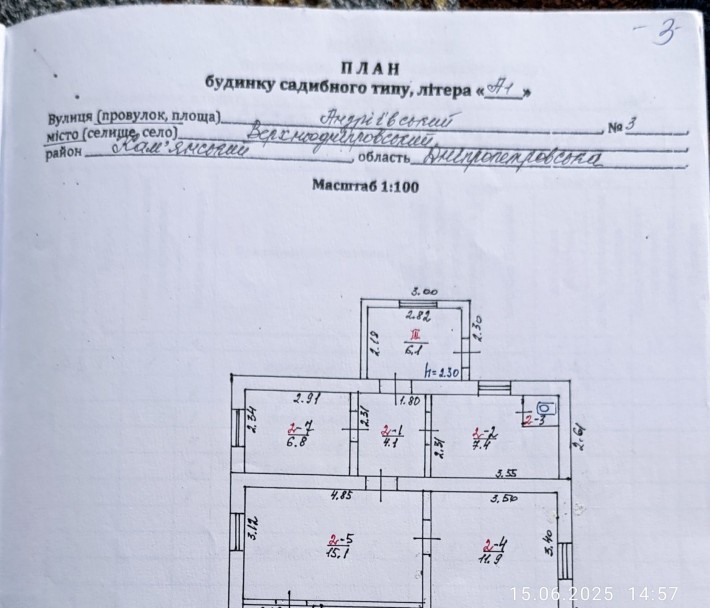 - 3
ПЛАН
будинку садибного типу, літера «А1»
Вулиця (провулок, площа) Андріївський № 3
місто (селище, село) Верхньодніпровський
район Кам'янський область Дніпропетровська
Масштаб 1:100
3.00
2.82
2.19
III
6,1
2.30
h=2.30
2.91
1.80
2.34
2-7
6.8
2.31
2-1
4.1
2.31
2-2
7.4
2-3
2.61
3.55
4.85
3,50
3.12
2-5
15.1
2-4
11.9
3,40
15.06.2025 14:57